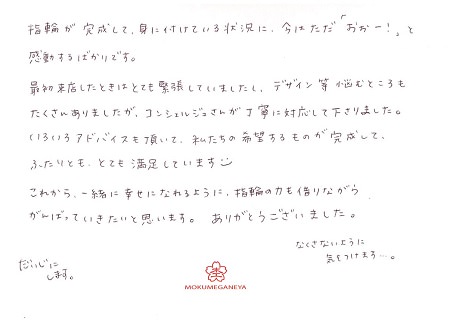 指輪が完成して、身に付けている状況に、今はただ「おおー！」と
感動するばかりです。
最初来店したときはとても緊張していましたし、デザイン等悩むところも
たくさんありましたが、コンシェルジュさんが丁寧に対応して下さりました。
いろいろアドバイスも頂いて、私たちの希望するものが完成して、
ふたりとも、とても満足しています
これから、一緒に幸せになれるように、指輪の力も借りながら
がんばっていきたいと思います。ありがとうございました。
なくさないように
気をつけます…。
だいじに
します。
MOKUMEGANEYA